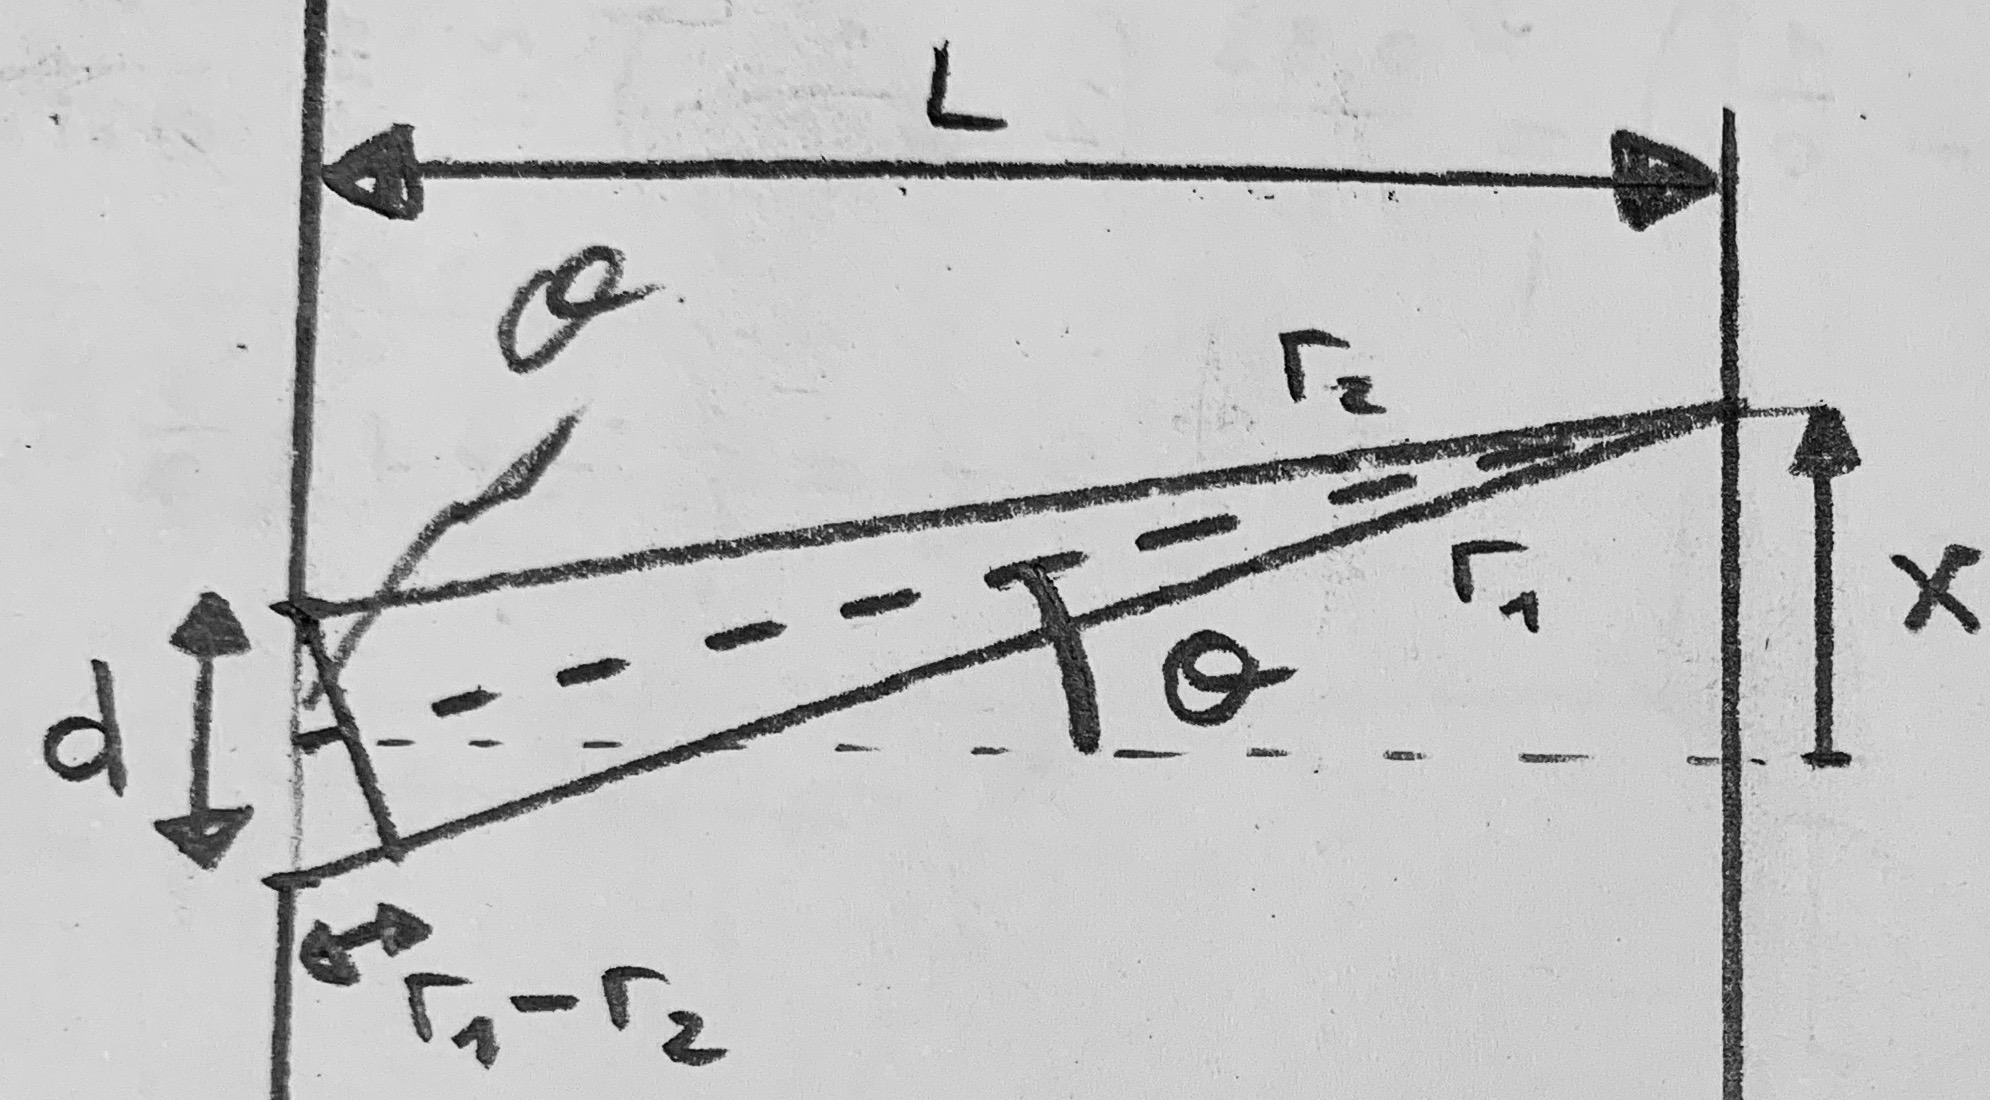 L
θ
r₂
r₁
x
d
θ
r₁-r₂